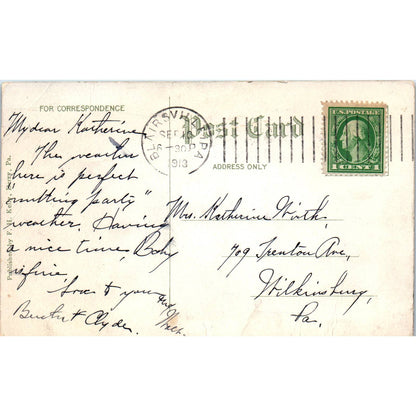 FOR CORRESPONDENCE
Post Card
ADDRESS ONLY
BLAIRSVILLE PA
SEP
6-30P
1913
U.S. POSTAGE
1 CENT 1
My dear Katherine
The weather
here is perfect
"nutting party"
weather. Having
a nice time, Baby
is fine.
Love to you
Clyde.
Mrs. Katherine Wirth,
709 Trenton Ave,
Wilkinsburg,
Pa.
Published by F. H.